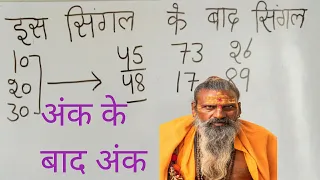 इस सिंगल के बाद सिंगल
10 45 73 26
20 48 17 89
30
अंक के
बाद अंक